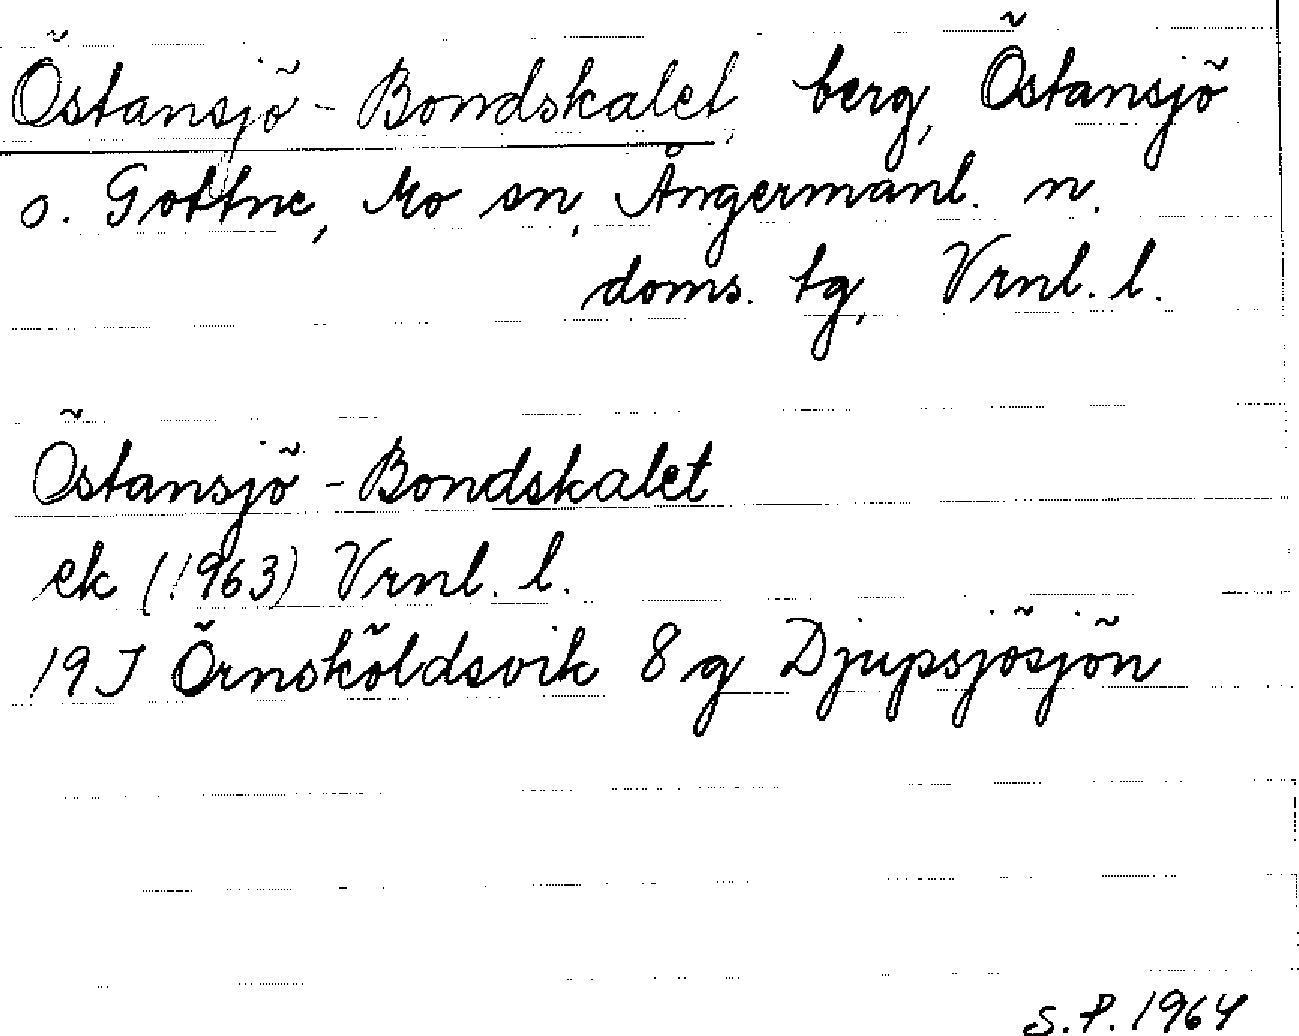 Östansjö-Bondskalet, berg, Östansjö
o. Gottne, Mo sn, Ångermanl. n.
doms. tg, Vrnl. l.
Östansjö-Bondskalet
ek (1963) Vrnl. l.
19J Örnsköldsvik 8g Djupsjösjön
S.P. 1964